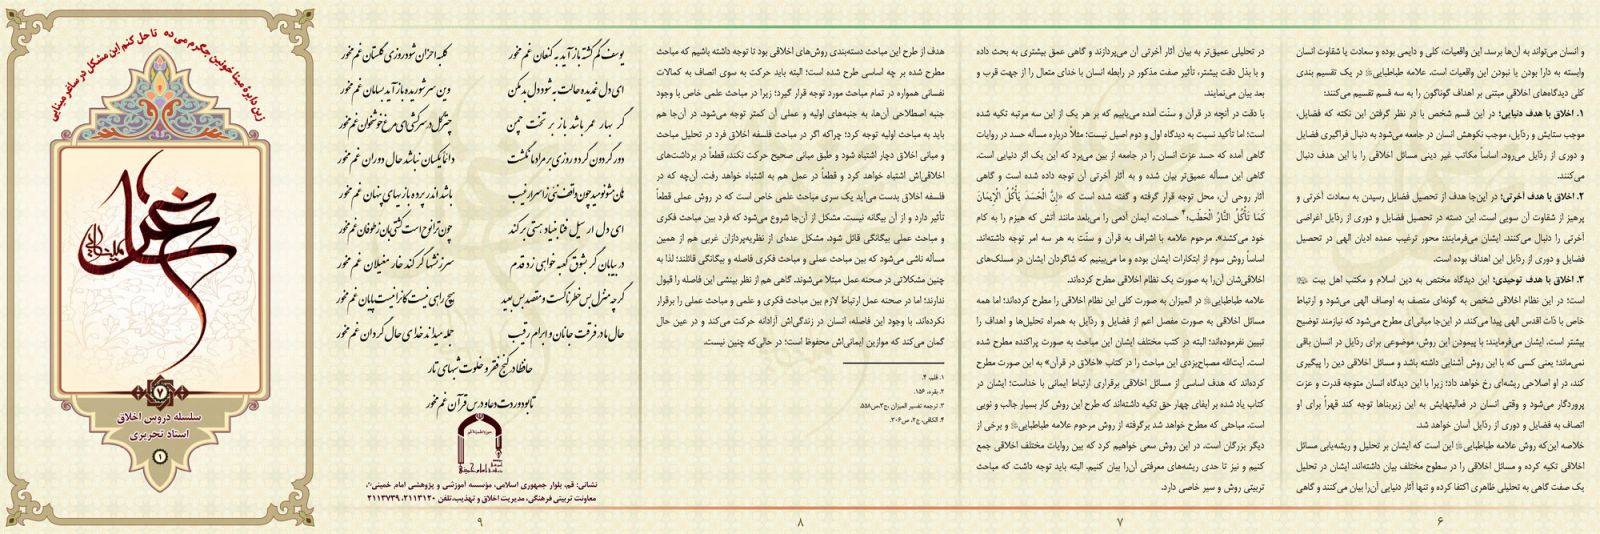 و انسان می‌تواند به آن‌ها برسد. این واقعیات، کلی و دایمی بوده و سعادت یا شقاوت انسان
وابسته به دارا بودن یا نبودن این واقعیات است. علامه طباطبایی در یک تقسیم بندی
کلی دیدگاه‌های اخلاقی مبتنی بر اهداف گوناگون را به سه قسم تقسیم می‌کنند:
۱. اخلاق با هدف دنیایی: در این قسم شخص با در نظر گرفتن این نکته که فضایل،
موجب ستایش و رذایل، موجب نکوهش انسان در جامعه می‌شود به دنبال فراگیری فضایل
و دوری از رذایل می‌رود. اساساً مکاتب غیر دینی مسائل اخلاقی را با این هدف دنبال
می‌کنند.
۲. اخلاق با هدف آخرتی: در این‌جا هدف از تحصیل فضایل رسیدن به سعادت آخرتی و
پرهیز از شقاوت آن سویی است. این دسته در تحصیل فضایل و دوری از رذایل اغراضی
آخرتی را دنبال می‌کنند. ایشان می‌فرمایند: محور ترغیب عمده ادیان الهی در تحصیل
فضایل و دوری از رذایل این اهداف بوده است.
۳. اخلاق با هدف توحیدی: این دیدگاه مختص به دین اسلام و مکتب اهل بیت
است؛ در این نظام اخلاقی شخص به گونه‌ای متصف به اوصاف الهی می‌شود و ارتباط
خاص با ذات اقدس الهی پیدا می‌کند. در این‌جا مبانی‌ای مطرح می‌شود که نیازمند توضیح
بیشتر است. ایشان می‌فرمایند: با پیمودن این روش، موضوعی برای رذایل در انسان باقی
نمی‌ماند؛ یعنی کسی که با این روش آشنایی داشته باشد و مسائل اخلاقی دین را پیگیری
کند، در او اصلاحی ریشه‌ای رخ خواهد داد؛ زیرا با این دیدگاه انسان متوجه قدرت و عزت
پروردگار می‌شود و وقتی انسان در فعالیتهایش به این زیربناها توجه کند قهراً برای او
انصاف به فضایل و دوری از رذایل آسان خواهد شد.
خلاصه این‌که روش علامه طباطبایی این است که ایشان بر تحلیل و ریشه‌یابی مسائل
اخلاقی تکیه کرده و مسائل اخلاقی را در سطوح مختلف بیان داشته‌اند. ایشان در تحلیل
یک صفت گاهی به تحلیلی ظاهری اکتفا کرده و تنها آثار دنیایی آن‌را بیان می‌کنند و گاهی
۶
در تحلیلی عمیق‌تر به بیان آثار أخرتی آن می‌پردازند و گاهی عمق بیشتری به بحث داده
و با بذل دقت بیشتر، تأثیر صفت مذکور در رابطه انسان با خدای متعال را از جهت قرب و
بعد بیان می‌نمایند.
با دقت در آنچه در قرآن و سنّت آمده می‌یابیم که بر هر یک از این سه مرتبه تکیه شده
است؛ اما تأکید نسبت به دیدگاه اول و دوم اصیل نیست؛ مثلاً درباره مسأله حسد در روایات
گاهی آمده که حسد عزت انسان را در جامعه از بین می‌برد که این یک اثر دنیایی است.
گاهی این مسأله عمیق‌تر بیان شده و به آثار أخرتی آن توجه داده شده است و گاهی
آثار روحی آن، محل توجه قرار گرفته و گفته شده است که «إِنَّ الْحَسَدَ يَأْكُلُ الْإِيمَانَ
كَمَا تَأْكُلُ النَّارُ الْحَطَبَ؛۴ حسادت، ایمان آدمی را می‌بلعد مانند آتش که هیزم را به کام
خود می‌کشد». مرحوم علامه با اشراف به قرآن و سنّت به هر سه امر توجه داشته‌اند.
اساساً روش سوم از ابتکارات ایشان بوده و ما می‌بینیم که شاگردان ایشان در مسلک‌های
اخلاقی‌شان آن‌را به صورت یک نظام اخلاقی مطرح کرده‌اند.
علامه طباطبایی در المیزان به صورت کلی این نظام اخلاقی را مطرح کرده‌اند؛ اما همه
مسائل اخلاقی به صورت مفصل اعم از فضایل و رذایل به همراه تحلیل‌ها و اهداف را
تبیین نفرموده‌اند؛ البته در کتب مختلف ایشان این مباحث به صورت پراکنده مطرح شده
است. آیت‌الله مصباح‌یزدی این مباحث را در کتاب «اخلاق در قرآن» به این صورت مطرح
کرده‌اند که هدف اساسی از مسائل اخلاقی برقراری ارتباط ایمانی با خداست؛ ایشان در
کتاب یاد شده بر ایفای چهار حق تکیه داشته‌اند که طرح این روش کار بسیار جالب و نویی
است. مباحثی که مطرح خواهد شد برگرفته از روش مرحوم علامه طباطبایی و برخی از
دیگر بزرگان است. در این روش سعی خواهیم کرد که بین روایات مختلف اخلاقی جمع
کنیم و نیز تا حدی ریشه‌های معرفتی آن‌را بیان کنیم. البته باید توجه داشت که مباحث
تربیتی روش و سیر خاصی دارد.
۷
هدف از طرح این مباحث دسته‌بندی روش‌های اخلاقی بود تا توجه داشته باشیم که مباحث
مطرح شده بر چه اساسی طرح شده است؛ البته باید حرکت به سوی اتصاف به کمالات
نفسانی همواره در تمام مباحث مورد توجه قرار گیرد؛ زیرا در مباحث علمی خاص با وجود
جنبه اصطلاحی آن‌ها، به جنبه‌های اولیه و عملی آن کمتر توجه می‌شود. در آن‌جا هم
باید به مباحث اولیه توجه کرد؛ چراکه اگر در مباحث فلسفه اخلاق فرد در تحلیل مباحث
و مبانی اخلاق دچار اشتباه شود و طبق مبانی صحیح حرکت نکند، قطعاً در برداشت‌های
اخلاقی‌اش اشتباه خواهد کرد و قطعاً در عمل هم به اشتباه خواهد رفت. آن‌چه که در
فلسفه اخلاق بدست می‌آید یک سری مباحث علمی خاص است که در روش عملی قطعاً
تأثیر دارد و از آن بیگانه نیست. مشکل از آن‌جا شروع می‌شود که فرد بین مباحث فکری
و مباحث عملی بیگانگی قائل شود. مشکل عده‌ای از نظریه‌پردازان غربی هم از همین
مسأله ناشی می‌شود که بین مباحث عملی و مباحث فکری فاصله و بیگانگی قائلند؛ لذا به
چنین مشکلاتی در صحنه عمل مبتلا می‌شوند. گاهی هم از نظر بینشی این فاصله را قبول
ندارند؛ اما در صحنه عمل ارتباط لازم بین مباحث فکری و علمی و مباحث عملی را برقرار
نکرده‌اند. با وجود این فاصله، انسان در زندگی‌اش آزادانه حرکت می‌کند و در عین حال
گمان می‌کند که موازین ایمانی‌اش محفوظ است؛ در حالی‌که چنین نیست.
۱. قلم، ۴.
۲. بقره، ۱۵۶.
۳. ترجمه تفسیر المیزان، ج۲،ص۵۵۸.
۴. الکافی، ج۲، ص۳۰۶.
۸
یوسف گم گشته باز آید به کنعان غم مخور
کلبه احزان شود روزی گلستان غم مخور
ای دل غمدیده حالت به شود دل بد مکن
وین سر شوریده باز آید بسامان غم مخور
گر بهار عمر باشد باز بر تخت چمن
چتر گل در سر کشی ای مرغ خوشخوان غم مخور
دور گردون گر دو روزی بر مراد ما نگشت
دائما یکسان نباشد حال دوران غم مخور
هان مشو نومید چون واقف نئی ز اسرار غیب
باشد اندر پرده بازیهای پنهان غم مخور
ای دل ار سیل فنا بنیاد هستی بر کند
چون ترا نوح است کشتیبان ز طوفان غم مخور
در بیابان گر بشوق کعبه خواهی زد قدم
سرزنشها گر کند خار مغیلان غم مخور
گر چه منزل بس خطرناکست و مقصد بس بعید
هیچ راهی نیست کانرا نیست پایان غم مخور
حال ما در فرقت جانان و ابرام رقیب
جمله میداند خدای حال گردان غم مخور
حافظا در کنج فقر و خلوت شبهای تار
تا بود وردت دعا و درس قرآن غم مخور
نشانی: قم، بلوار جمهوری اسلامی، مؤسسه آموزشی و پژوهشی امام خمینی
معاونت تربیتی فرهنگی، مدیریت اخلاق و تهذیب،تلفن ۲۱۱۳۱۲۰، ۲۱۱۳۷۳۹
۹
زین دایرهٔ مینا خونین جگرم می ده تا حل کنم این مشکل در ساغر مینایی
۷
سلسله دروس اخلاق
استاد تحریری
۱